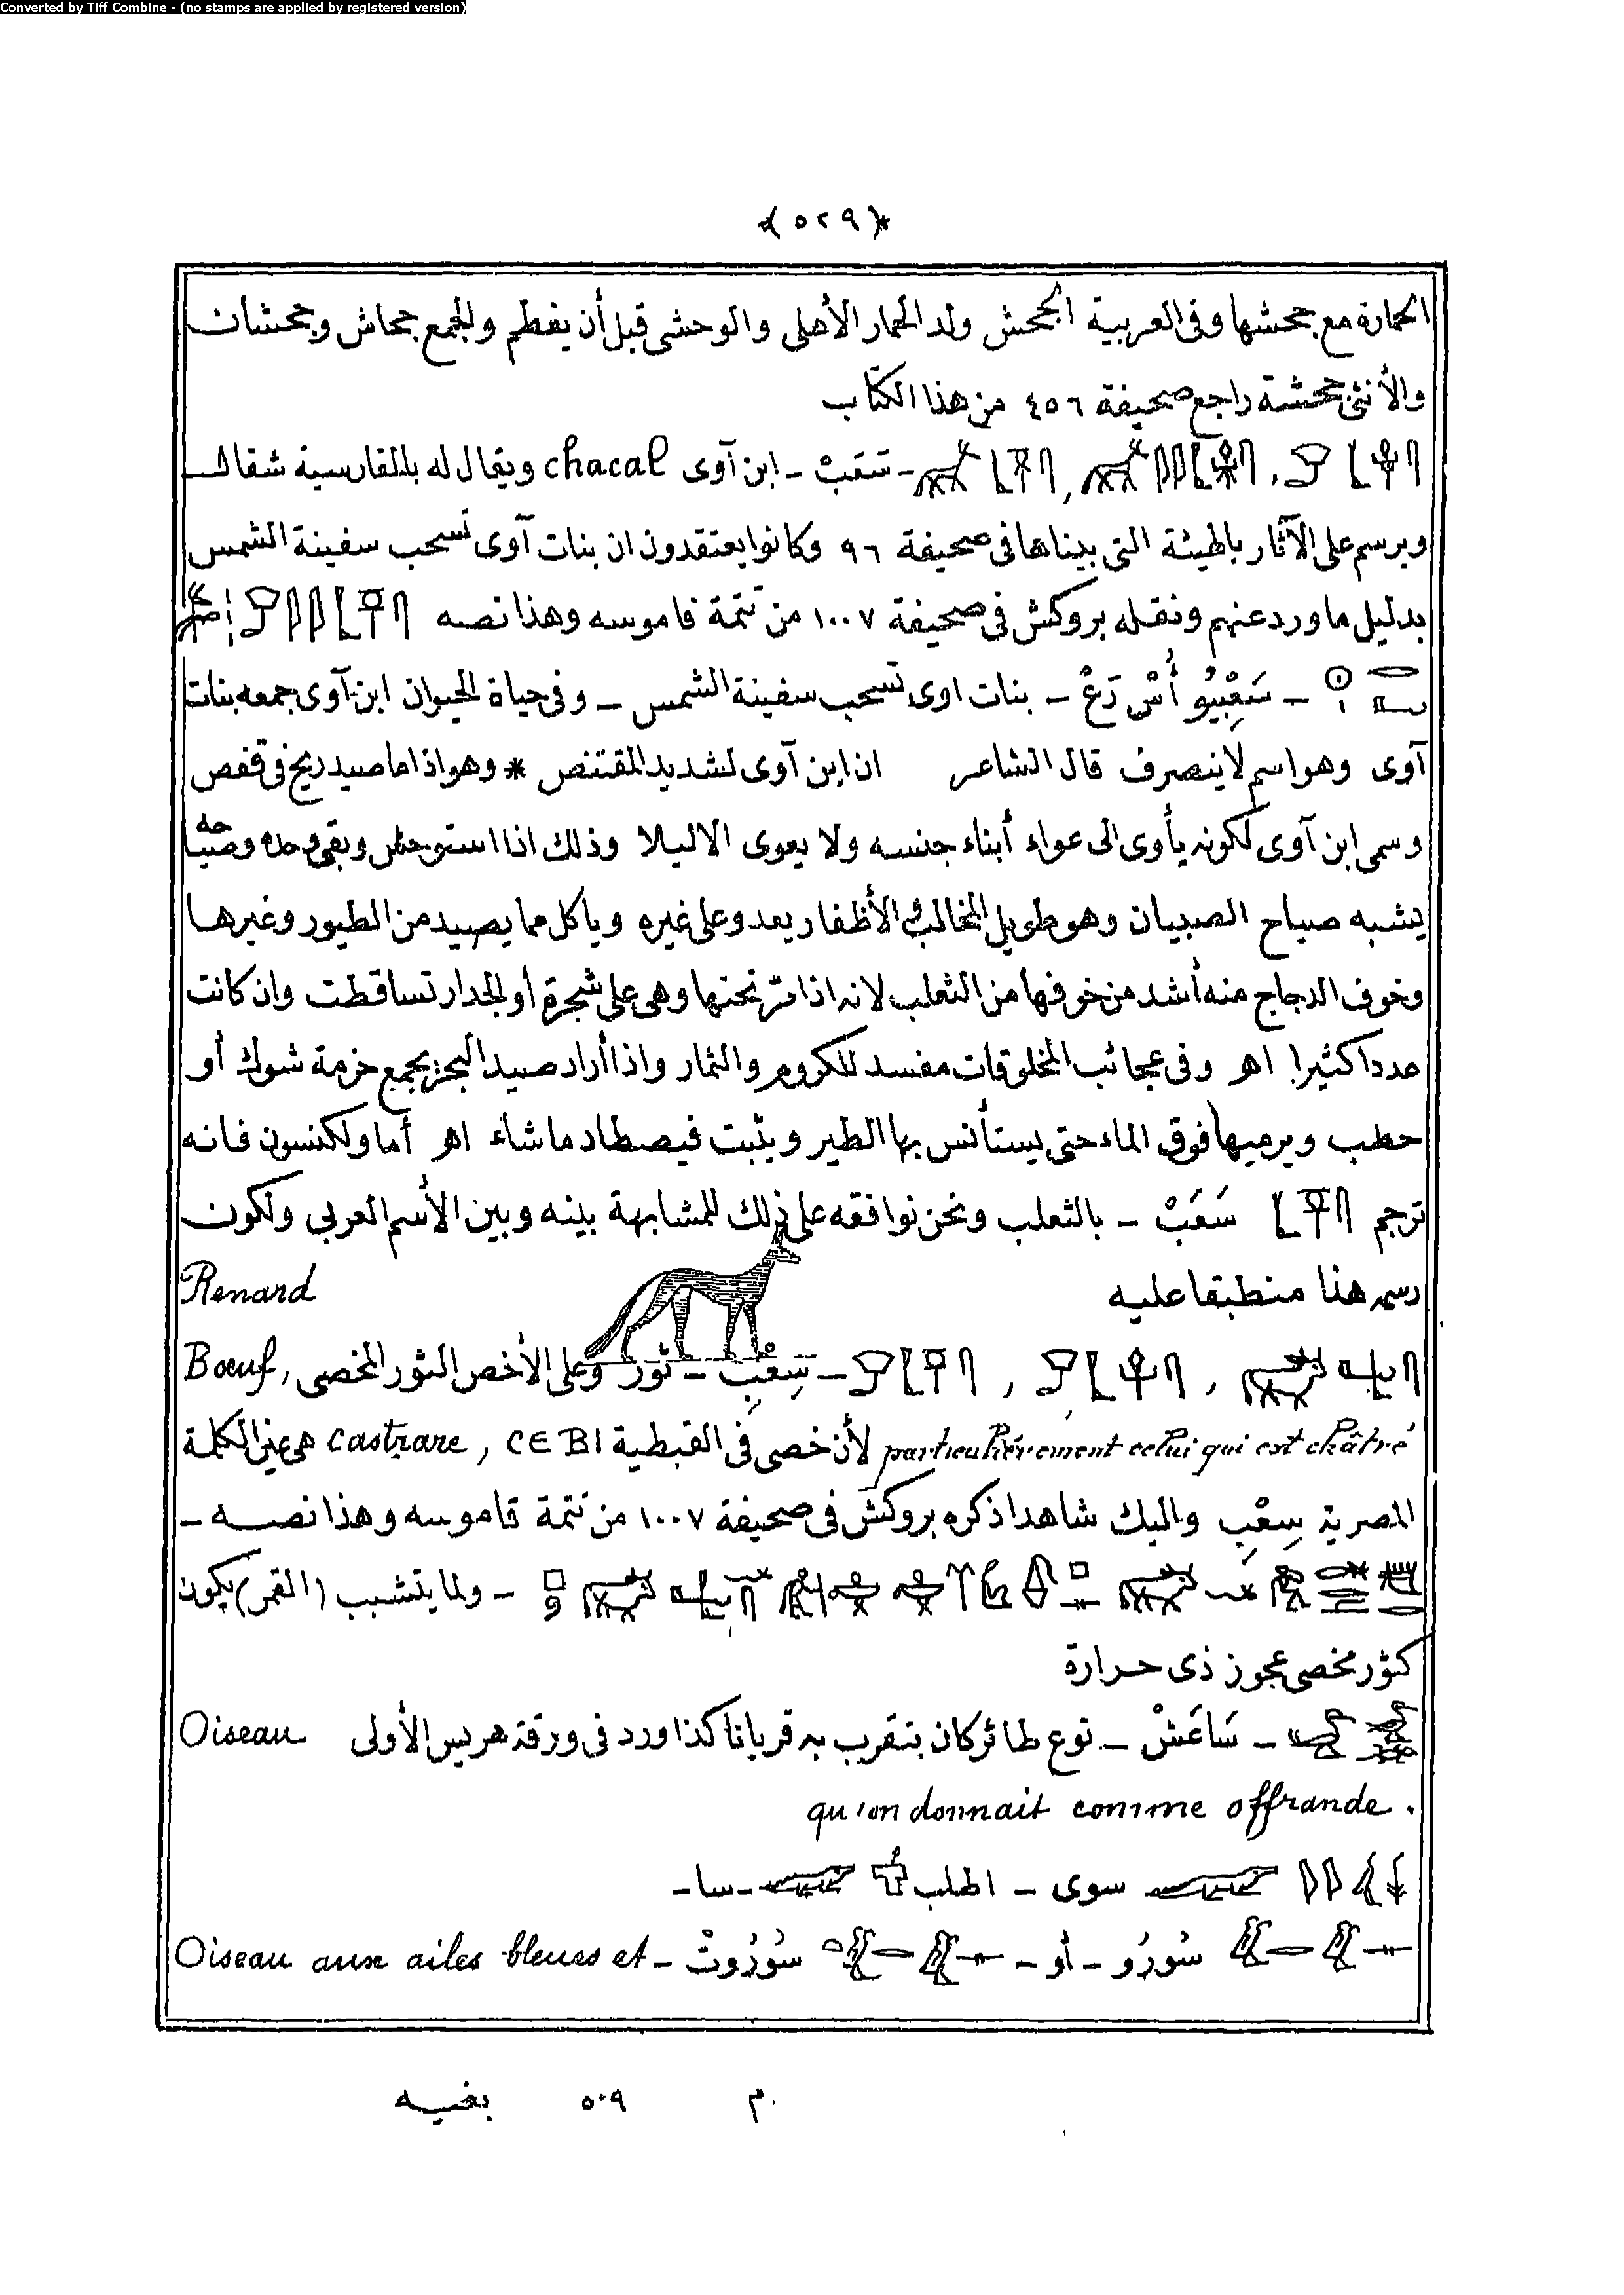 Converted by Tiff Combine - (no stamps are applied by registered version)
﴿٥٢٩﴾
الحمارة مع جحشها وفى العربية الجحش ولد الحمار الأهلى والوحشى قبل أن يفطم والجمع جحاش وجحشان
والأنثى جحشة راجع صحيفة ٤٥٦ من هذا الكتاب
سَعَبْ - ابن آوى chacal ويقال له بالفارسية شقال
ويرسم على الآثار بالهيئة التى بيناها فى صحيفة ٩٦ وكانوا يعتقدون ان بنات آوى تسحب سفينة الشمس
بدليل ما ورد عنهم ونقله بروكش فى صحيفة ١٠٠٧ من تتمة قاموسه وهذا نصه
- سَعِبْيُو أُسْ رَعْ - بنات اوى تسحب سفينة الشمس - وفى حياة الحيوان ابن آوى جمعه بنات
آوى وهو اسم لا ينصرف قال الشاعر ان ابن آوى لشديد المقتنص * وهو اذا ما صيد ريح فى قفص
وسمى ابن آوى لكونه يأوى الى عواء أبناء جنسه ولا يعوى الا ليلا وذلك اذا استوحش وبقى وحده وصياحه
يشبه صياح الصبيان وهو طويل المخالب والأظفار يعدو على غيره ويأكل مما يصيد من الطيور وغيرها
وخوف الدجاج منه أشد من خوفها من الثعلب لانه اذا مرّ تحتها وهى على شجرة أو الجدار تساقطت وان كانت
عددا كثيرا اهـ وفى عجائب المخلوقات مفسد للكروم والثمار واذا أراد صيد البحر يجمع حزمة شوك أو
حطب ويرميها فوق الماء حتى يستأنس بها الطير ويثبت فيصطاد ما شاء اهـ أما ولكنسون فانه
ترجم سَعَبْ - بالثعلب ونحن نوافقه على ذلك للمشابهة بينه وبين الأسم العربى ولكون
رسمه هذا منطبقا عليه Renard
- سِعْبِ - ثور وعلى الأخص الثور المخصى Boeuf,
particulièrement celui qui est châtré لأن خصى فى القبطية castrare, CEBI هى عين الكلمة
المصرية سِعْبِ واليك شاهدا ذكره بروكش فى صحيفة ١٠٠٧ من تتمة قاموسه وهذا نصه -
- ولما يتشبب (القمر) يكون
كثور مخصى عجوز ذى حرارة
- سَاعَشْ - نوع طائر كان يتقرب به قربانا كذا ورد فى ورقة هريس الأولى Oiseau
qu'on donnait comme offrande.
سوى - الهلب - سا -
سُورُو - أو - سُوْرُوتْ - Oiseau aux ailes bleues et
م ٥٠٩ بغيه